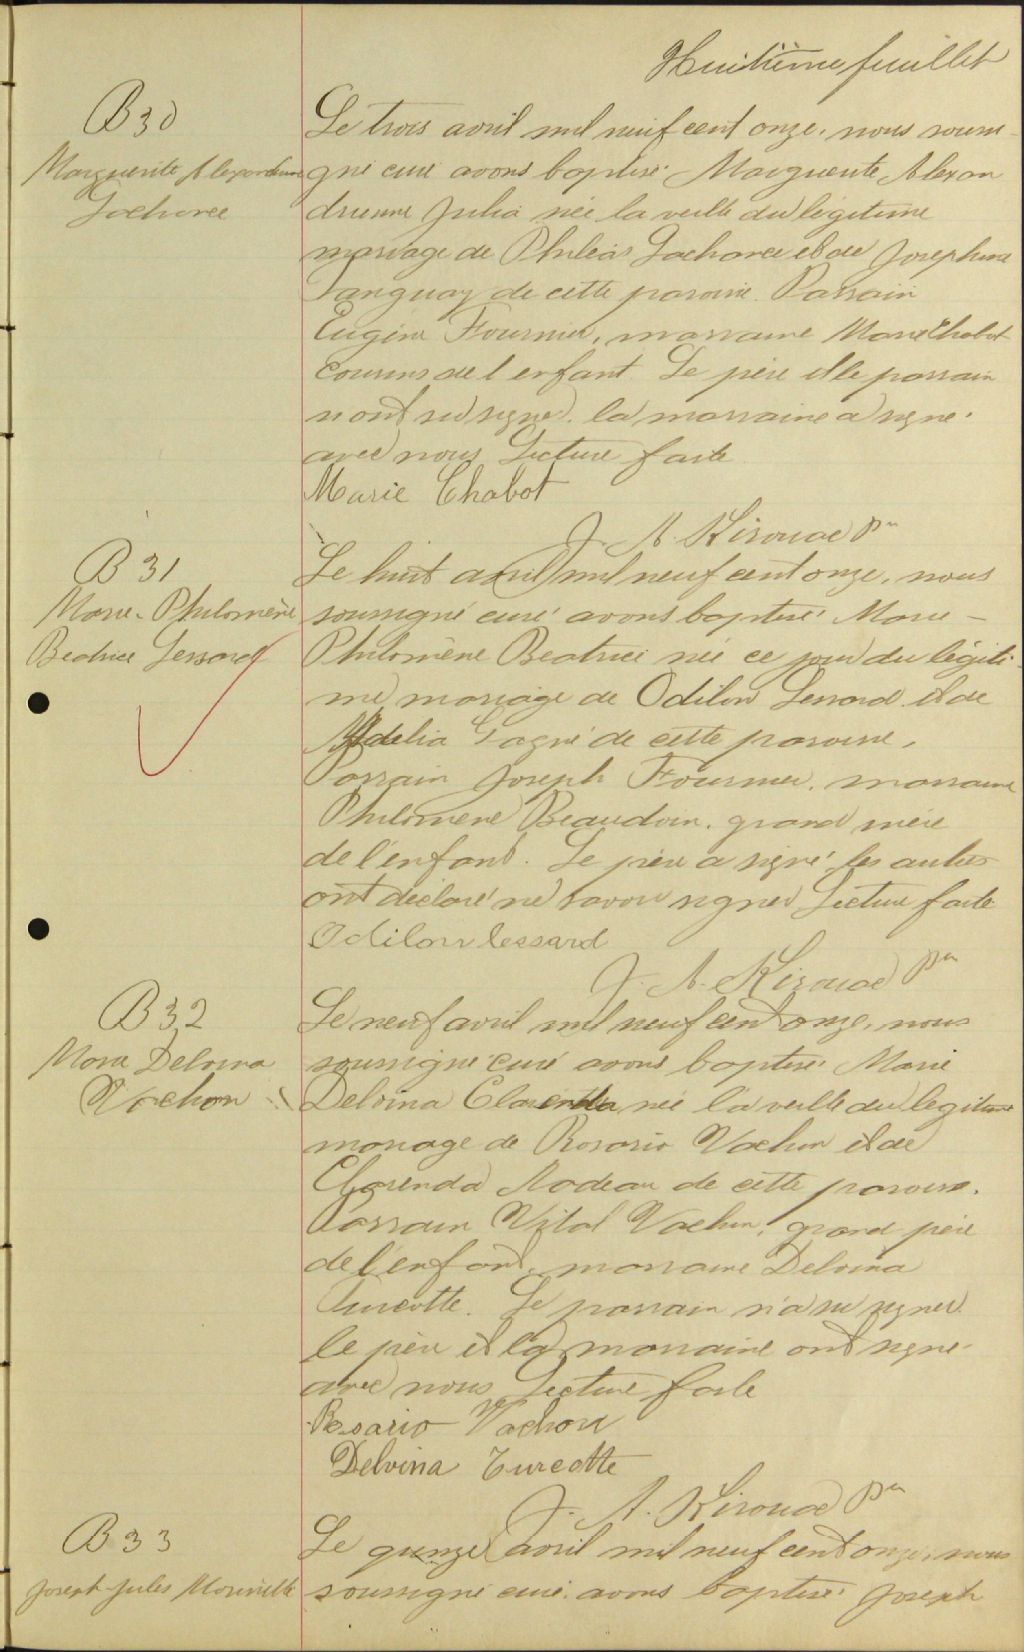 Huitième feuillet
B 30
Marguerite Alexandrienne
Lachance
Le trois avril mil neuf cent onze, nous soussi-
gné curé avons baptisé Marguerite Alexan
drienne Julia née la veille du légitime
mariage de Philéas Lachance et de Josephine
Tanguay de cette paroisse. Parrain
Eugène Fournier, marraine Marie Chabot
cousins de l'enfant. Le père et le parrain
n'ont su signer. la marraine a signé
avec nous Lecture faite
Marie Chabot
J. A. Kirouac Ptre
B 31
Marie-Philomène
Beatrice Lessard
Le huit avril mil neuf cent onze, nous
soussigné curé avons baptisé Marie-
Philomène Beatrice née ce jour du légiti-
me mariage de Odilon Lessard et de
Adelia Gagné de cette paroisse,
Parrain Joseph Fournier, marraine
Philomène Beaudoin, grand mère
de l'enfant. Le père a signé, les autres
ont déclaré ne savoir signer Lecture faite
Odilon lessard
J. A. Kirouac Ptre
B 32
Marie Delvina
Vachon
Le neuf avril mil neuf cent onze, nous
soussigné curé avons baptisé Marie
Delvina Clarenda née la veille du légitime
mariage de Rosario Vachon et de
Clarenda Nadeau de cette paroisse.
Parrain Vital Vachon, grand père
de l'enfant, marraine Delvina
Turcotte. Le parrain n'a su signer
le père et la marraine ont signé
avec nous Lecture faite
Rosario Vachon
Delvina Turcotte
J. A. Kirouac Ptre
B 33
Joseph Jules Morinville
Le quinze avril mil neuf cent onze, nous
soussigné curé avons baptisé Joseph